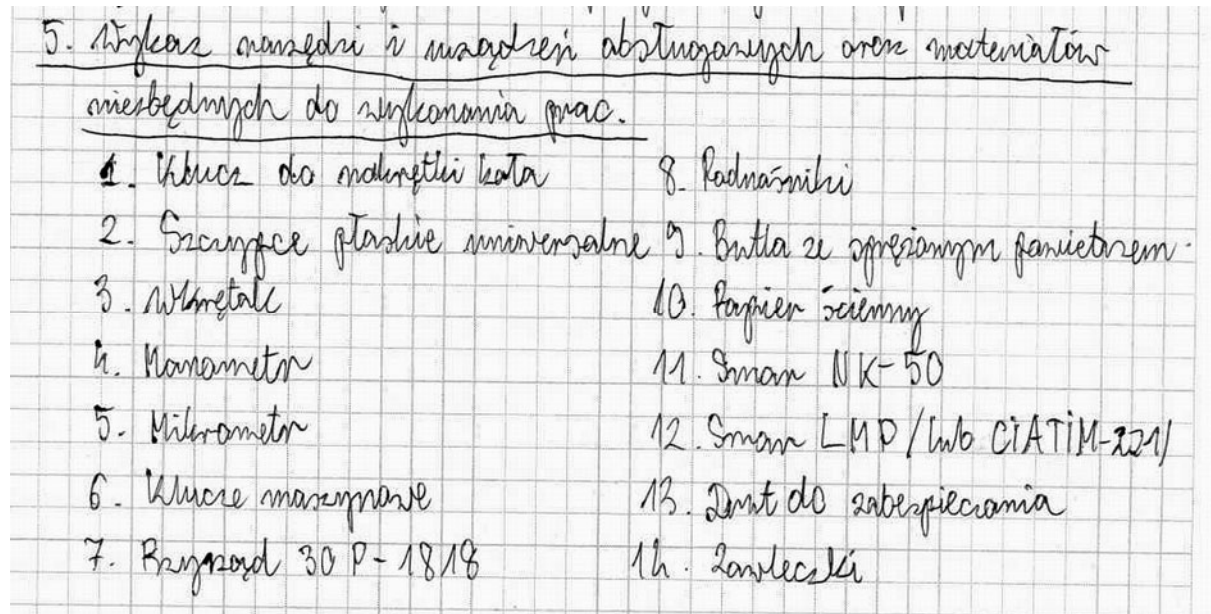 5. Wykaz narzędzi i urządzeń obsługowych oraz materiałów
niezbędnych do wykonania prac.
1. Klucz do nakrętki koła
2. Szczypce płaskie uniwersalne
3. Wkrętak
4. Manometr
5. Mikrometr
6. Klucze maszynowe
7. Przyrząd 30 P-1818
8. Podnośniki
9. Butla ze sprężonym powietrzem.
10. Papier ścierny
11. Smar NK-50
12. Smar ŁMP /lub CIATIM-221/
13. Drut do zabezpieczania
14. Zawleczki